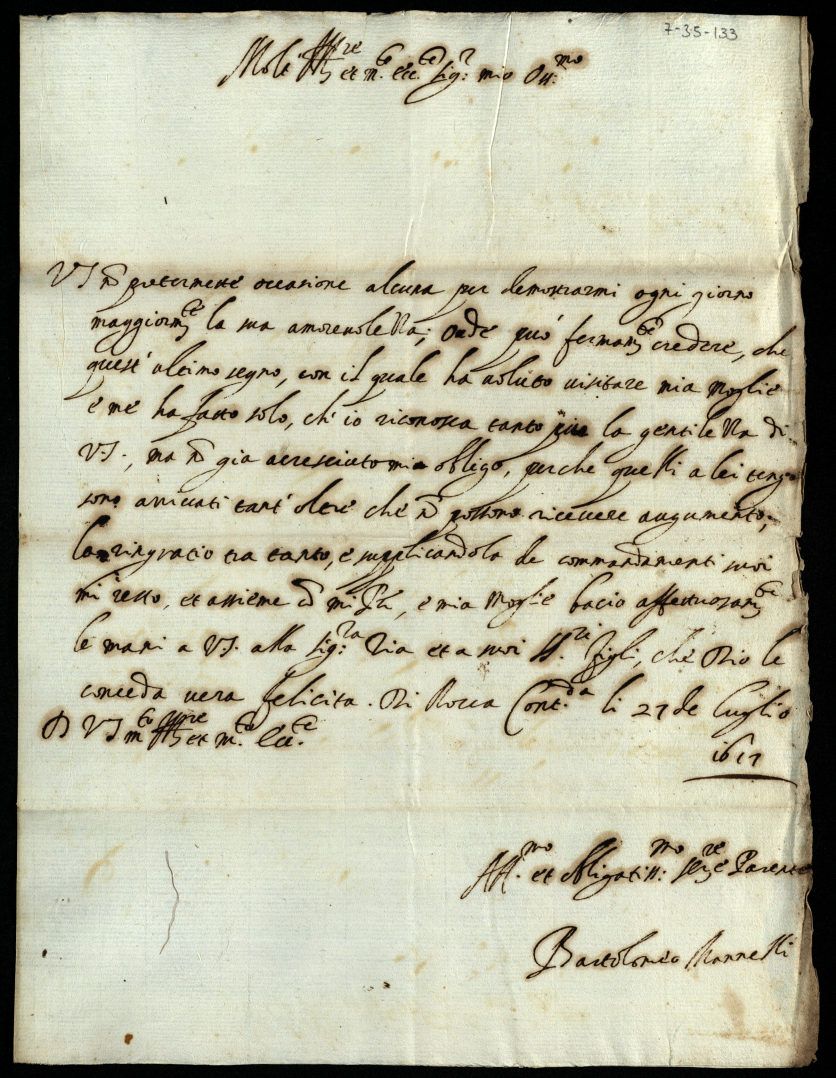 7-35-133
Molt' Ill.re et m.to ecc.te sig.r mio oss.mo
VS nō pretermette occasione alcuna per demostrarmi ogni giorno
maggiorm.te la sua amorevolezza; onde può fermam.te credere, che
quest' ultimo segno, con il quale ha voluto visitare mia Moglie
e me ha fatto solo, ch' io riconosca tanto più la gentilezza di
VS., ma nō gia acresciuto mio obligo, perche quelli a lei tengo
sono arrivati tant' oltre che nō possono ricevere augumento;
la ringratio tra tanto, e supplicandola de commandamenti suoi
mi resto, et assieme cō mi, e mia Moglie bacio affettuosam.te
le mani a VS. alla sig.ra Zia et a suoi SS.ri figli, che Dio le
conceda vera felicita. Di Rocca Cont.da li 27 de Luglio
D VS m.to Ill.re et m.to Ecc.te
1617
Aff.mo et obligatiss.mo ser.re e Parente
Bartolomeo Mannelli